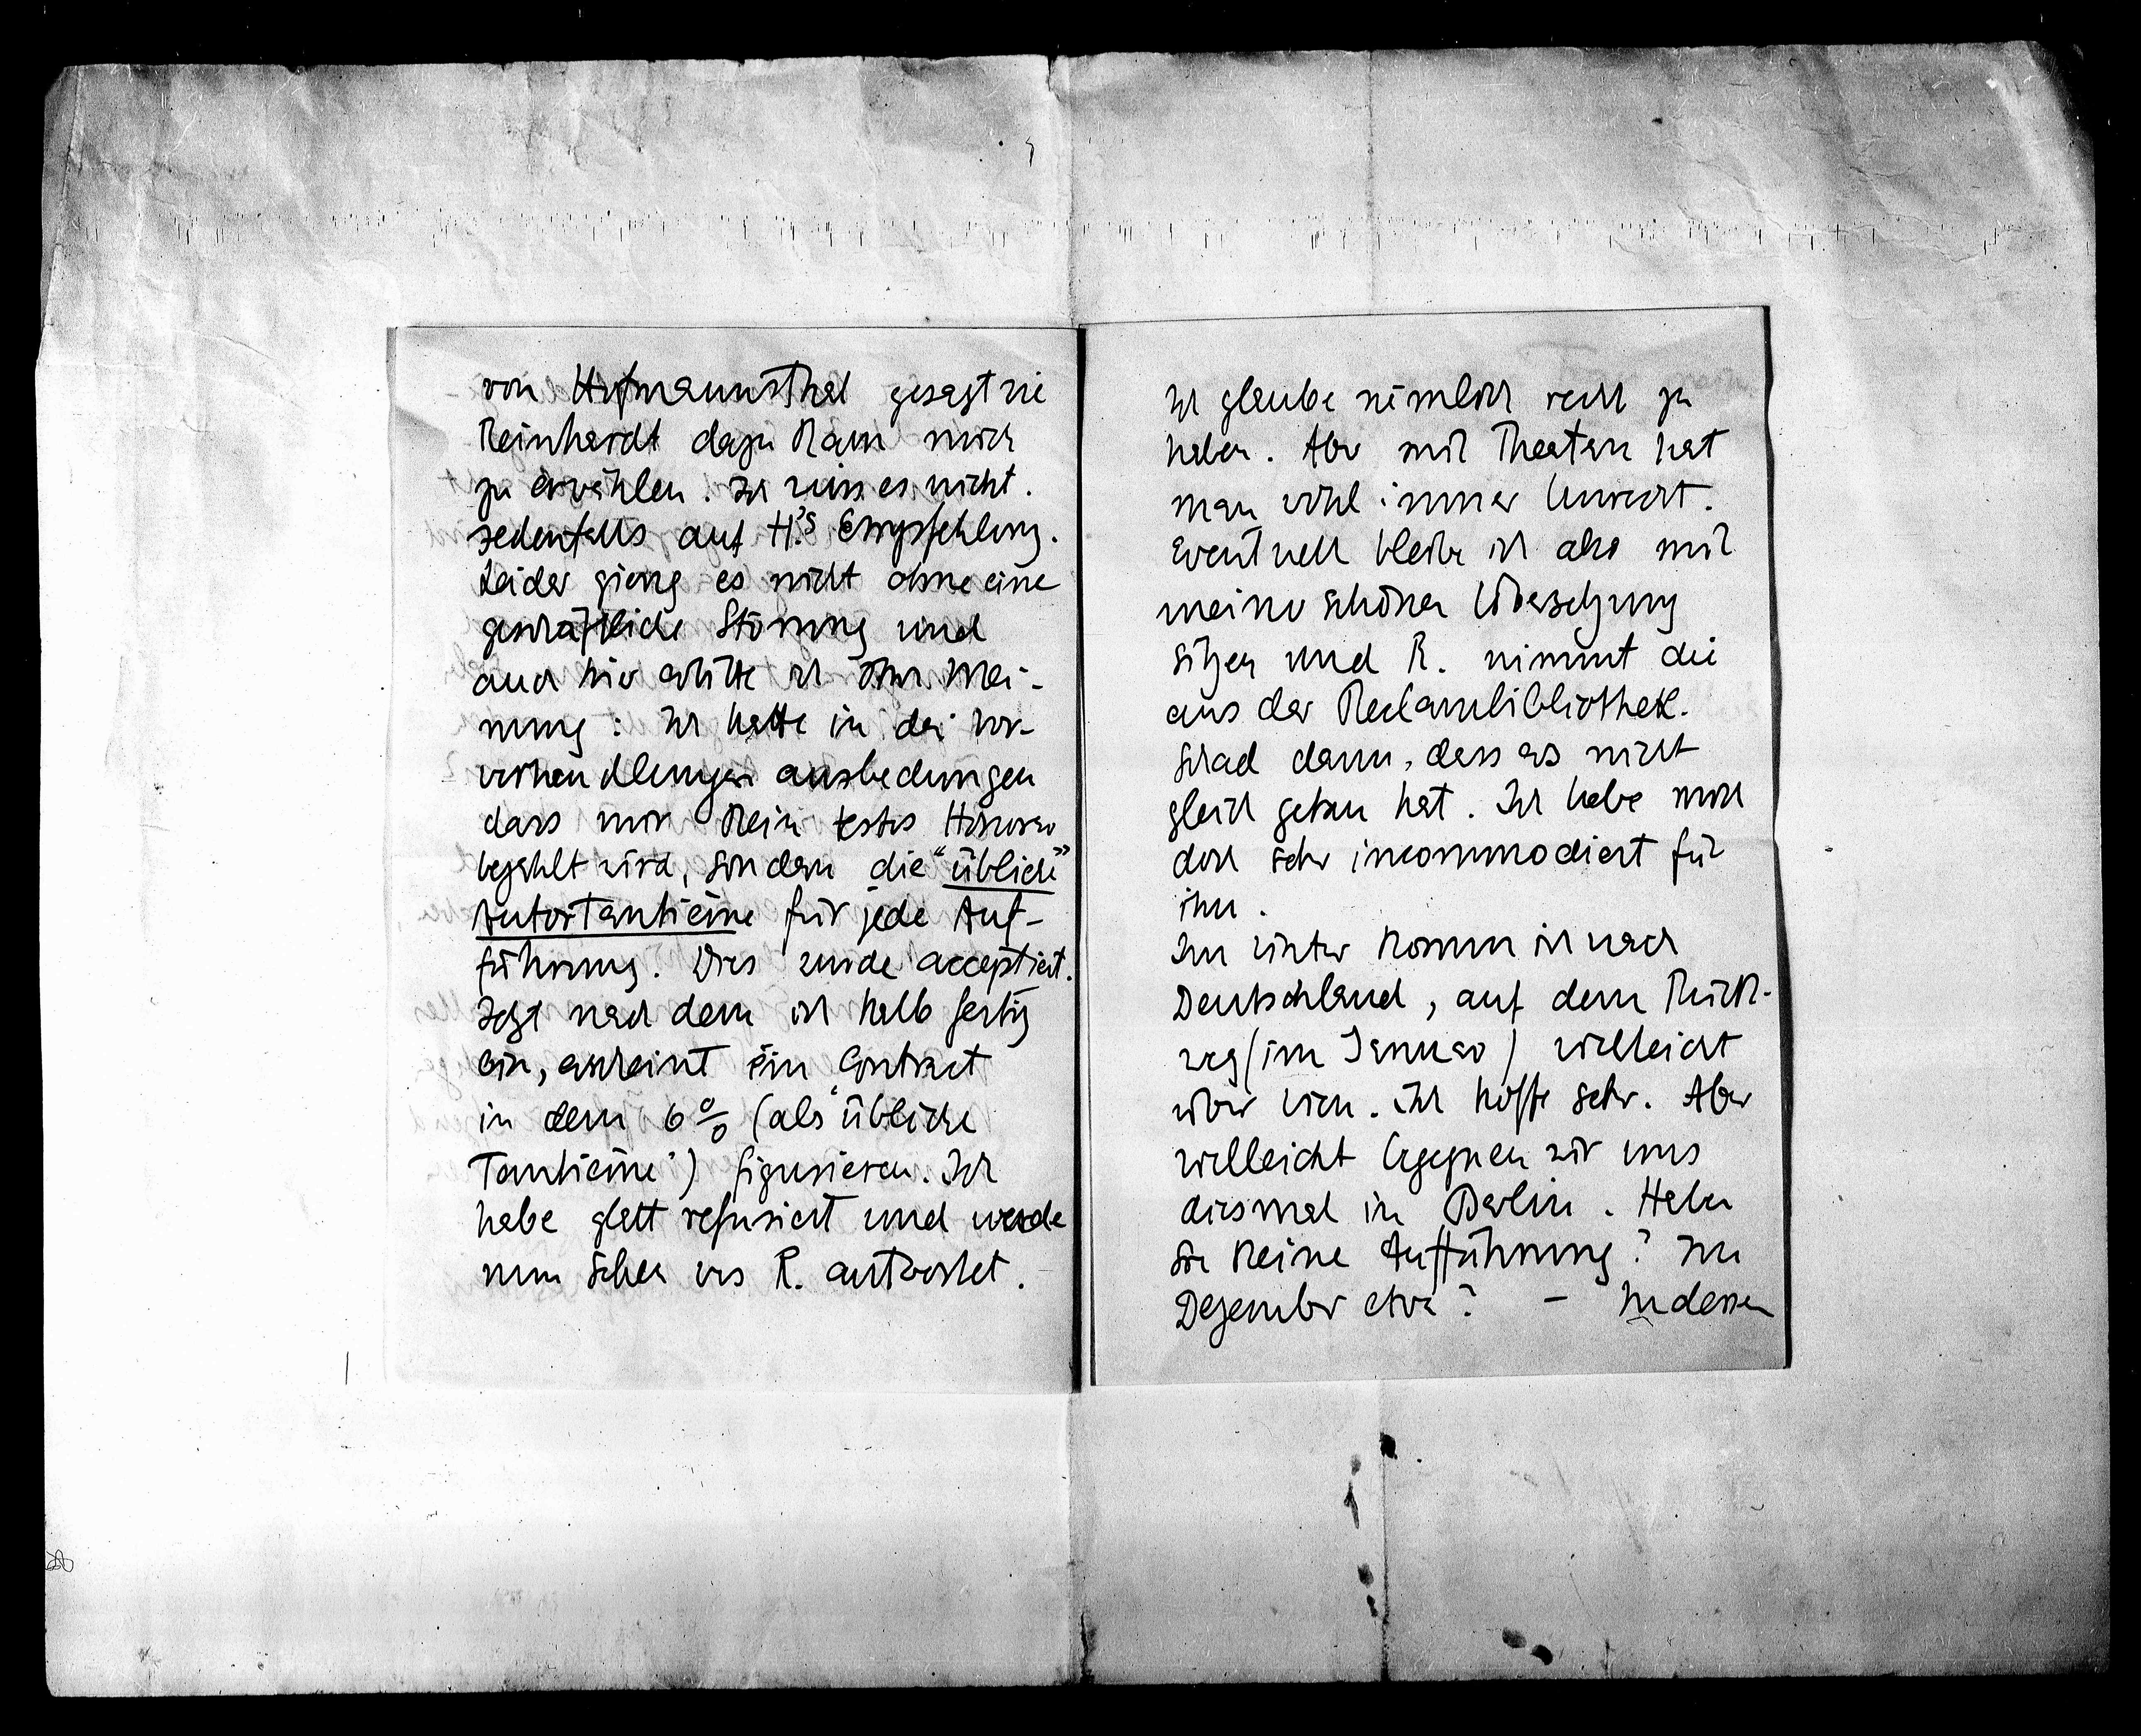 von Hofmannsthal gesagt wie
Reinhardt dazu kam mich
zu erwählen. Ich weiss es nicht.
Jedenfalls auf H.'s Empfehlung.
Leider gieng es nicht ohne eine
geschäftliche Störung und
auch hier erbitte ich Ihre Mei-
nung: Ich hatte in den Vor-
verhandlungen ausbedungen
dass mir kein festes Honorar
bezahlt wird, sondern die "übliche"
Autortantième für jede Auf-
führung. Dies wurde acceptiert.
Jetzt nach dem ich halb fertig
bin, erscheint ein Contract
in dem 6% (als "übliche
Tantième") figurieren. Ich
habe glatt refusiert und werde
nun sehen was R. antwortet.
Ich glaube nämlich recht zu
haben. Aber mit Theatern hat
man wohl immer Unrecht.
Eventuell bleibe ich also mit
meiner schönen Übersetzung
sitzen und R. nimmt die
aus der Reclambibliothek.
Schad dann, dass er's nicht
gleich getan hat. Ich habe mich
doch sehr incommodiert für
ihn.
Im Winter komm ich nach
Deutschland, auf dem Rück-
weg (im Januar) vielleicht
über Wien. Ich hoffe sehr. Aber
vielleicht begegnen wir uns
diesmal in Berlin. Haben
Sie keine Aufführung? Im
Dezember etwa? – Indessen